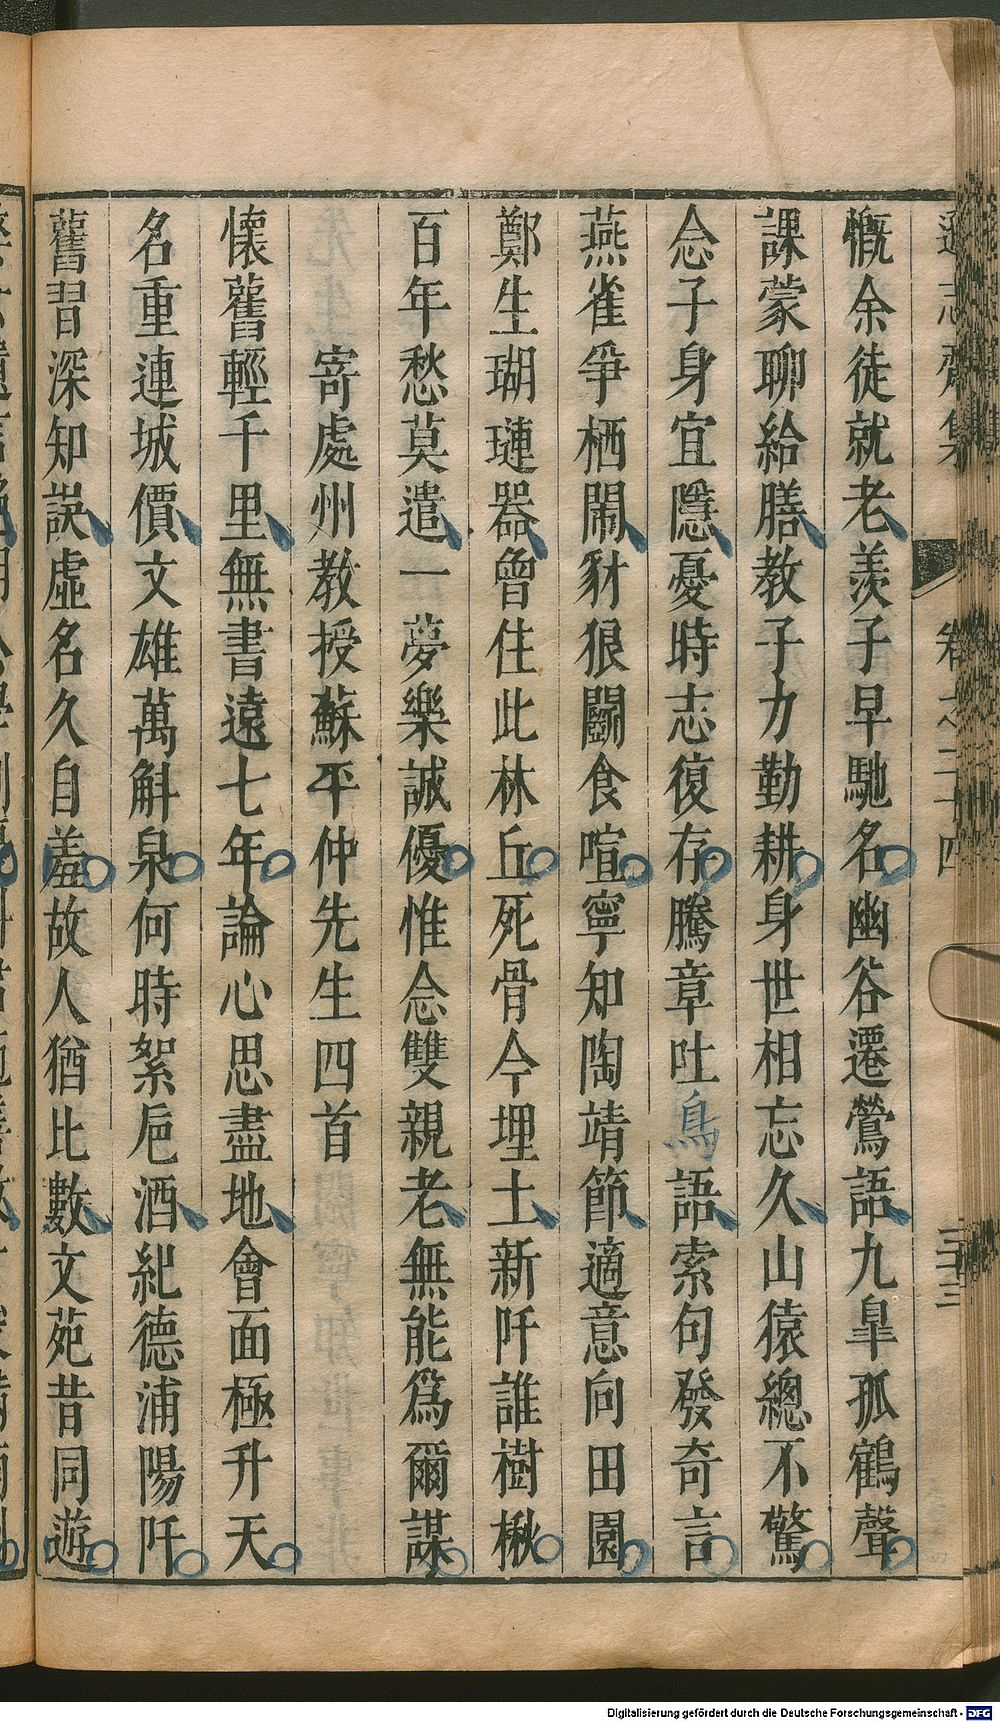 遜志齋集 卷之二十四 三十三
慨余徒就老羨子早馳名幽谷遷鶯語九皐孤鶴聲
課蒙聊給膳教子力勤耕身世相忘久山猿總不驚
念子身宜隱憂時志復存騰章吐鳥語索句發奇言
燕雀爭栖鬧豺狼鬭食喧寧知陶靖節適意向田園
鄭生瑚璉器曾住此林丘死骨今埋土新阡誰樹楸
百年愁莫遣一夢樂誠優惟念雙親老無能爲爾謀
寄處州教授蘇平仲先生四首
懷舊輕千里無書遠七年論心思盡地會面極升天
名重連城價文雄萬斛泉何時絮巵酒紀德浦陽阡
舊習深知誤虛名久自羞故人猶比數文苑昔同遊
Digitalisierung gefördert durch die Deutsche Forschungsgemeinschaft - DFG